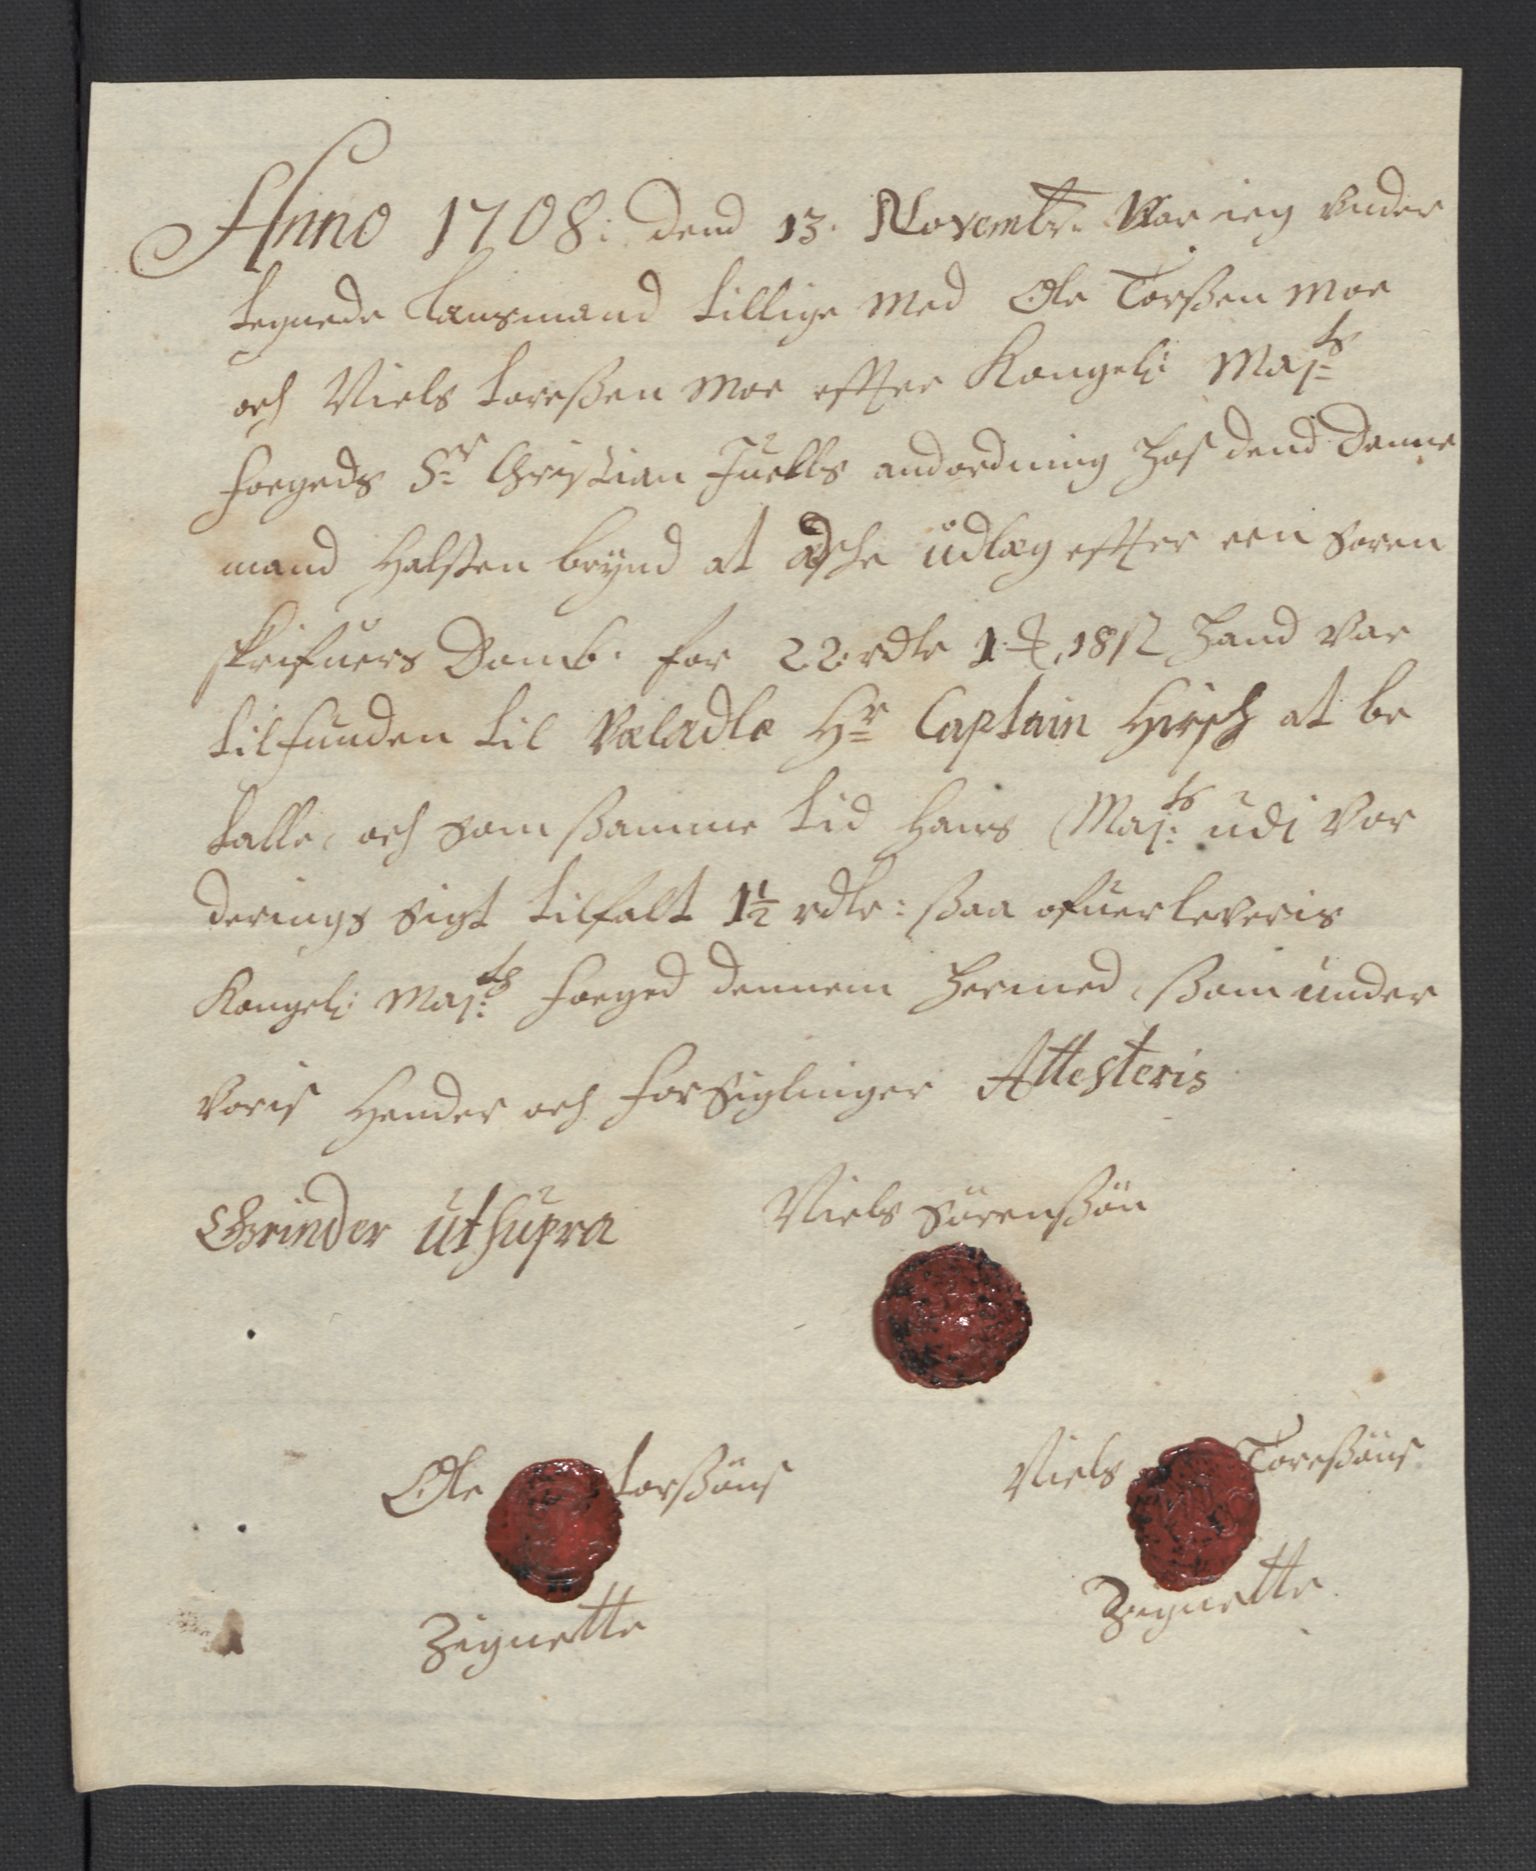 Anno 1708: dend 13. Novembr. Var ieg under
tegnede Lansmand tillige med Ole Torßen Moe
och Niels Toreßen Moe efter Kongel: Maj:ts
foegeds Sr Christian Juells andordning hos dend Danne
mand Halsten brynd at æsche üdlæg efter een Soren
skrifuers Domb. for 22 rdlr 1 18 s hand var
tilfunden til Vælædle Hr Captain Hirsch at be
talle, och som ßamme tid Hans Maj:ts udi Vor
derings sigt tilfalt 1½ rdlr: ßaa ofuerleveris
Kongel: Maj:ts foeged dennem hermed, ßom under
voris Hender och forsiglinger Attesteris
Grinder ut supra
Niels Sörenßön
Ole Torßöns
Niels Toreßöns
Zignette
Zignette